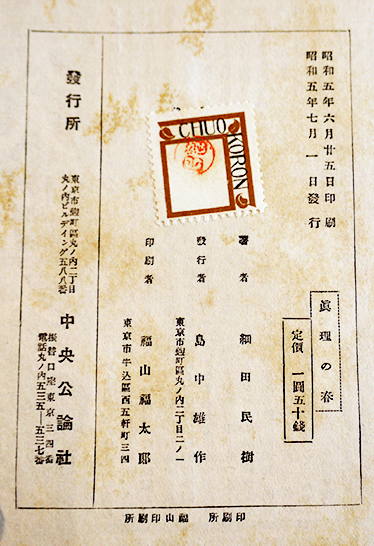 昭和五年六月廿五日印刷
昭和五年七月一日發行
眞理の春
定價 一圓五十錢
著者 細田民樹
發行者 島中雄作
東京市麹町區丸ノ内二丁目二ノ一
印刷者 福山福太郎
東京市牛込區西五軒町三四
CHUO
KORON
發行所
東京市麹町區丸ノ内二丁目
丸ノ内ビルデイング五八八番
中央公論社
振替口座東京三四番
電話丸ノ内五三五一五三七番
印刷所 福山印刷所